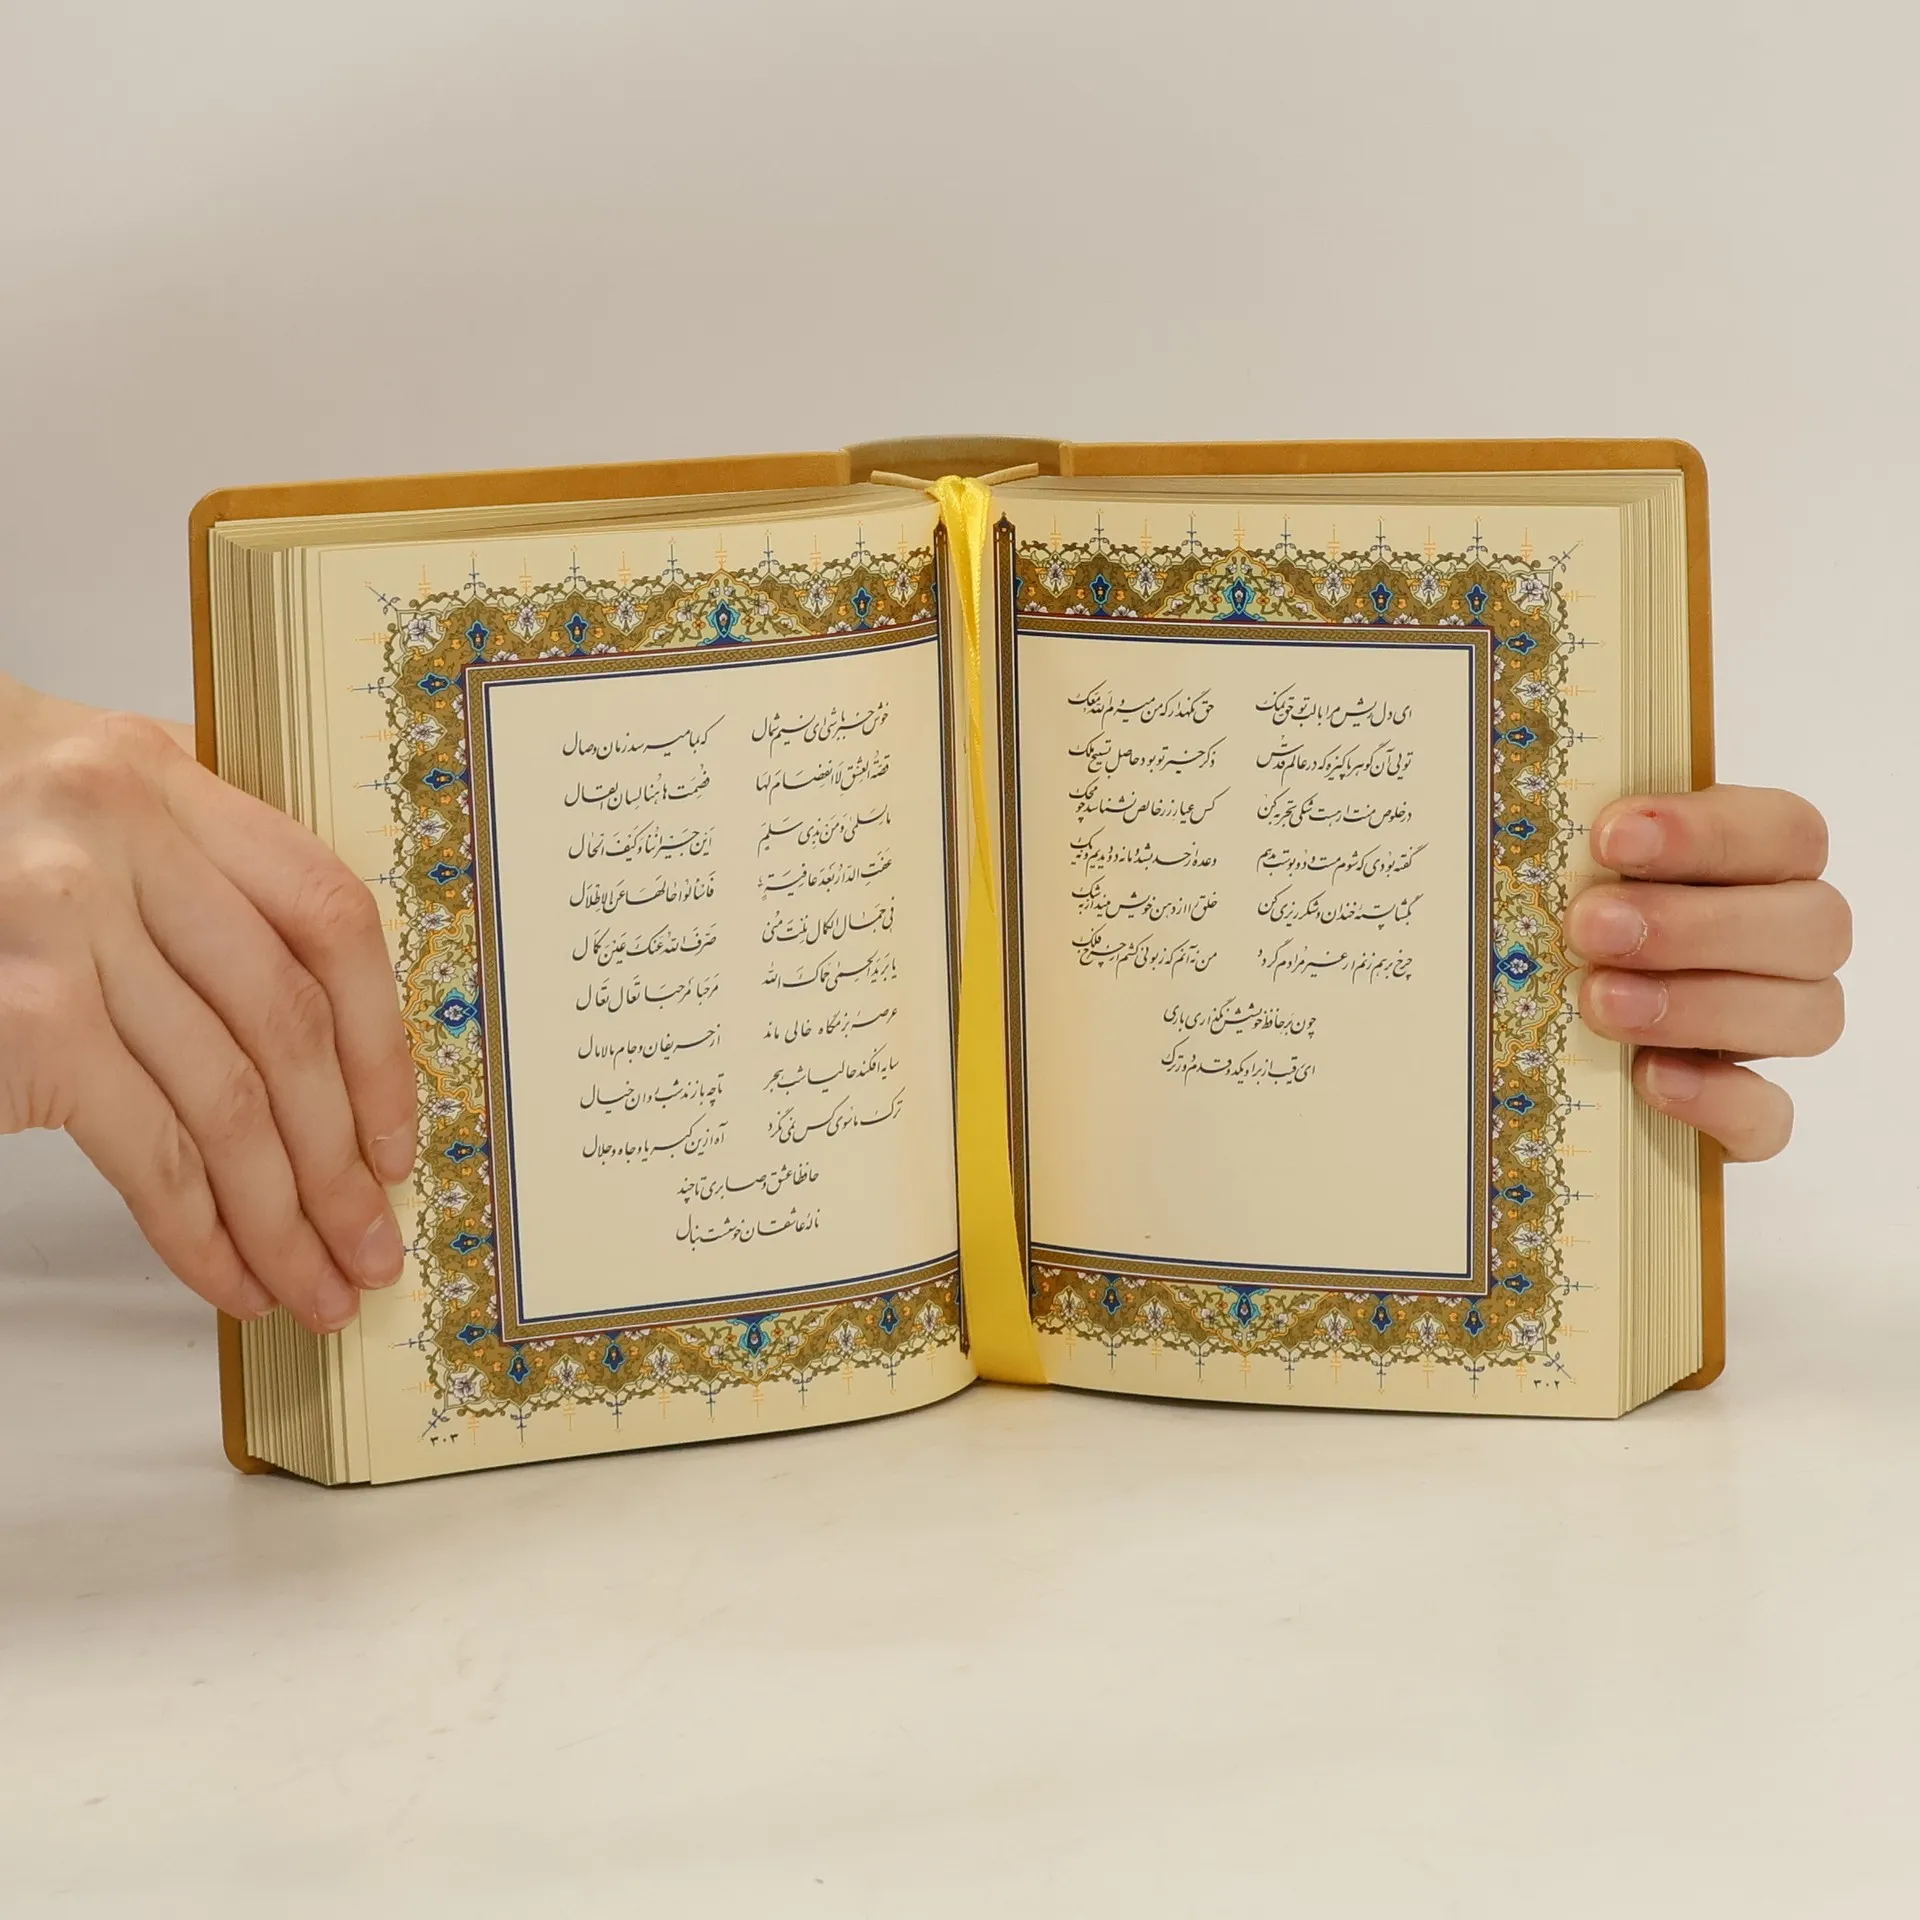 ای دل ریش مرا با لب تو حق نمک حق نگهدار که من میروم الله معک
تویی آن گوهر پاکیزه که در عالم قدس ذکر خیر تو بود حاصل تسبیح ملک
در خلوص منت ار هست شکی تجربه کن کس عیار زر خالص نشناسد چو محک
گفته بودی که شوم مست و دو بوست بدهم وعده از حد بشد و ما نه دو دیدیم و نه یک
بگشا پستهٔ خندان و شکر ریزی کن خلق را از دهن خویش مینداز به شک
چرخ برهم زنم ار غیر مرادم گردد من نه آنم که زبونی کشم از چرخ فلک
چون بر حافظ خویشش نگذاری باری
ای رقیب از بر او یکدو قدم دورترک
۳۰۲
خوش خبر باشی ای نسیم شمال که بما میرسد زمان وصال
قصّةُ العِشقِ لَا انفِصامَ لَها فُصِمَت هاهُنا لِسانُ القال
ما لِسَلمیٰ وَ مَن بِذی سَلَمٍ اَینَ جیرانُنا وَ کَیفَ الحال
عَفَتِ الدّارُ بَعدَ عافِیَةٍ فَاسْأَلوا حالَها عَنِ الاَطلال
فی جَمالِ الکَمالِ نِلتَ مُنیٰ صَرَّفَ اللهُ عَنکَ عَینَ کَمال
یا بَریدَ الحِمیٰ حَماکَ الله مَرحَبا مَرحَبا تَعال تَعال
عرصهٔ بزمگاه خالی ماند از حریفان و جام مالامال
سایه افکند حالیا شب هجر تا چه بازند شب روان خیال
ترک ما سوی کس نمی نگرد آه ازین کبریا و جاه و جلال
حافظا عشق و صابری تا چند
نالهٔ عاشقان خوشست بنال
۳۰۳